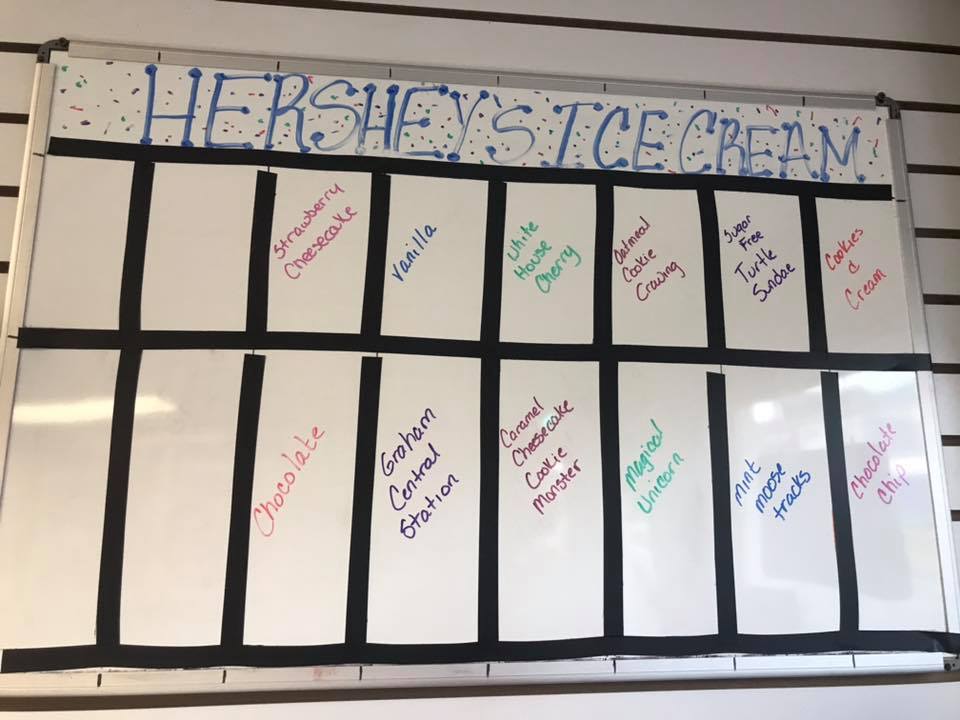 HERSHEY'S ICE CREAM
Strawberry
Cheesecake
Vanilla
White
House
Cherry
Oatmeal
Cookie
Craving
Sugar
Free
Turtle
Sundae
Cookies
&
Cream
Chocolate
Graham
Central
Station
Caramel
Cheesecake
Cookie
Monster
Magical
Unicorn
Mint
moose
tracks
Chocolate
Chip